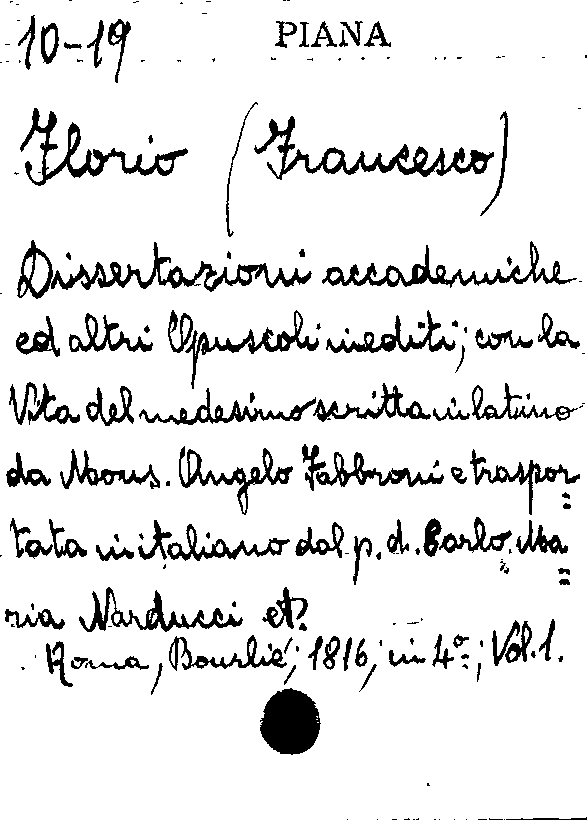 10-19 PIANA
Florio (Francesco)
Dissertazioni accademiche
ed altri Opuscoli inediti; con la
Vita del medesimo scritta in latino
da Mons. Angelo Fabbroni e traspor=
tata in italiano dal p. d. Carlo Ma=
ria Narducci et?
Roma, Bourlié; 1816; in 4º; Vol. 1.